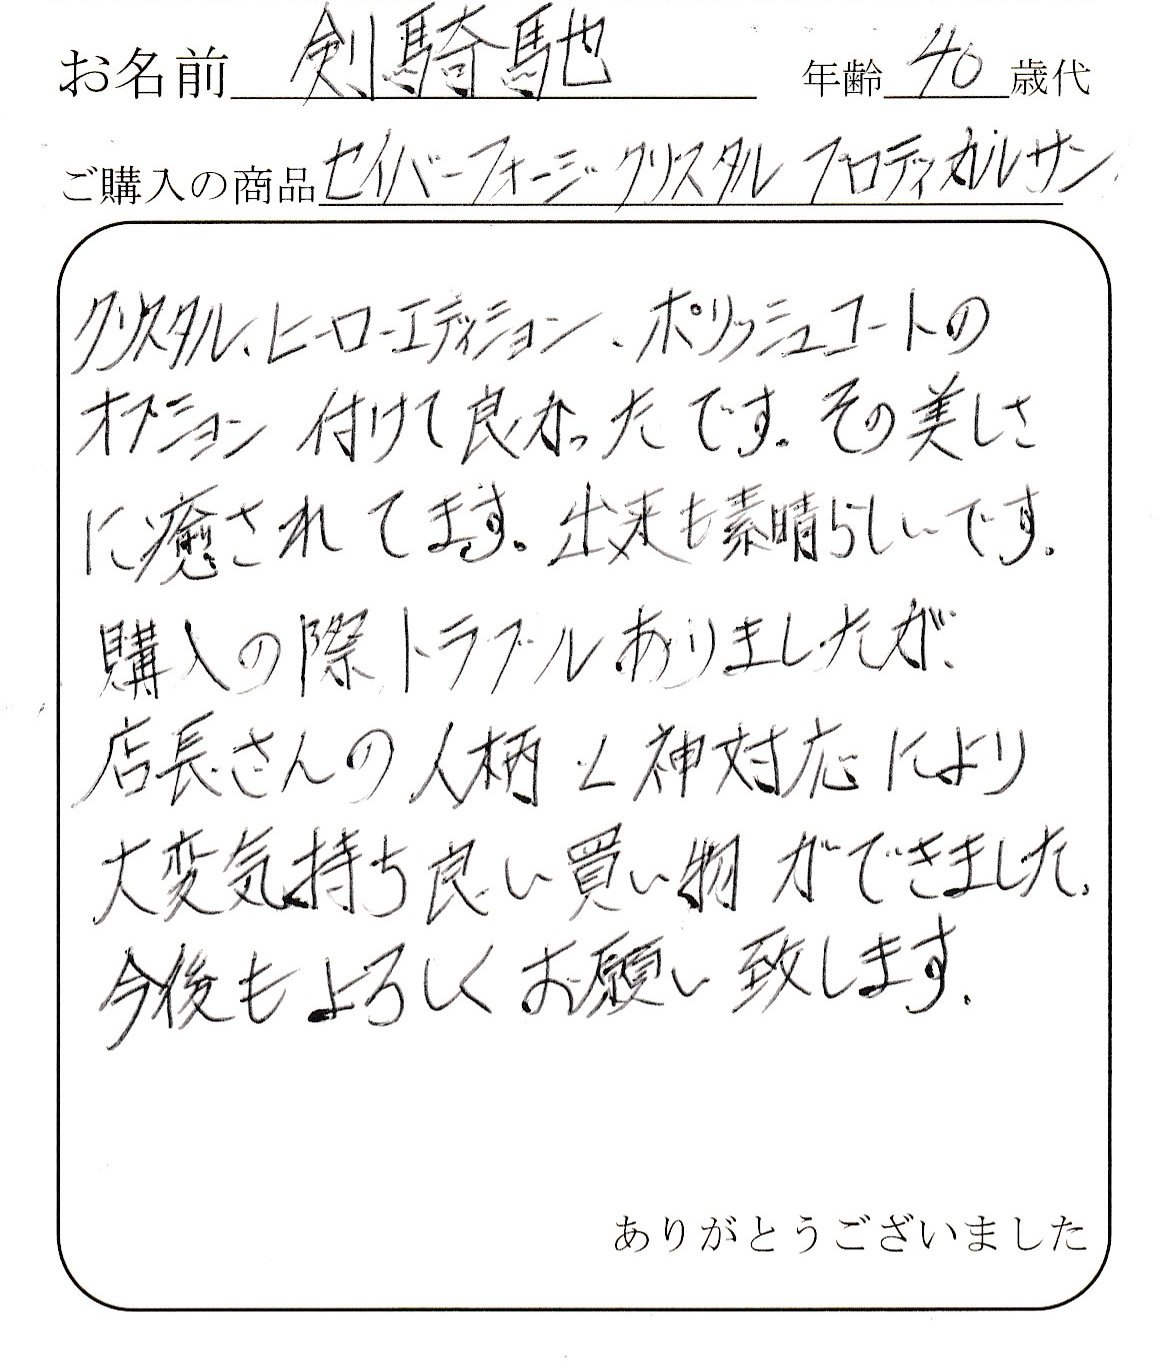 お名前 剣騎馳 年齢 40 歳代
ご購入の商品 セイバーフォージ クリスタル プロディガルサン
クリスタル、ヒーローエディション、ポリッシュコートの
オプション 付けて良かったです。その美しさ
に癒されてます。出来も素晴らしいです。
購入の際トラブルありましたが、
店長さんの人柄と神対応により
大変気持ち良い買い物ができました。
今後もよろしくお願い致します。
ありがとうございました